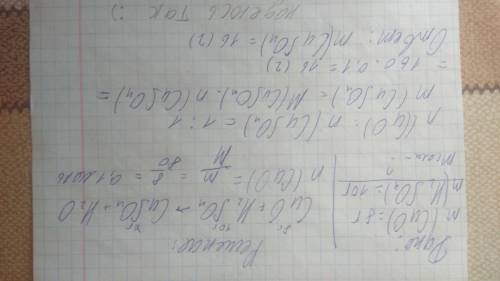 Дано:
m(CuO) = 8г
m(H₂SO₄) = 10г
Решение:
8г 10г xг
CuO + H₂SO₄ → CuSO₄ + H₂O
n(CuO) = m/M = 8/80 = 0,1 моль
n(CuO) : n(CuSO₄) = 1 : 1
m(CuSO₄) = M(CuSO₄) · n(CuSO₄) =
= 160 · 0,1 = 16 (г)
Ответ: m(CuSO₄) = 16 (г)
надеюсь так :)